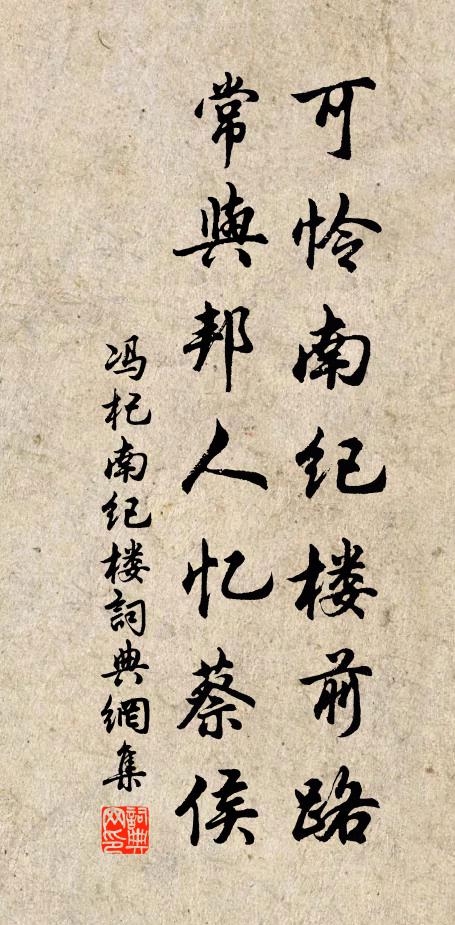 可怜南纪楼前路
常與邦人忆蔡侯
冯杞南纪楼詞典網集
詞典網印